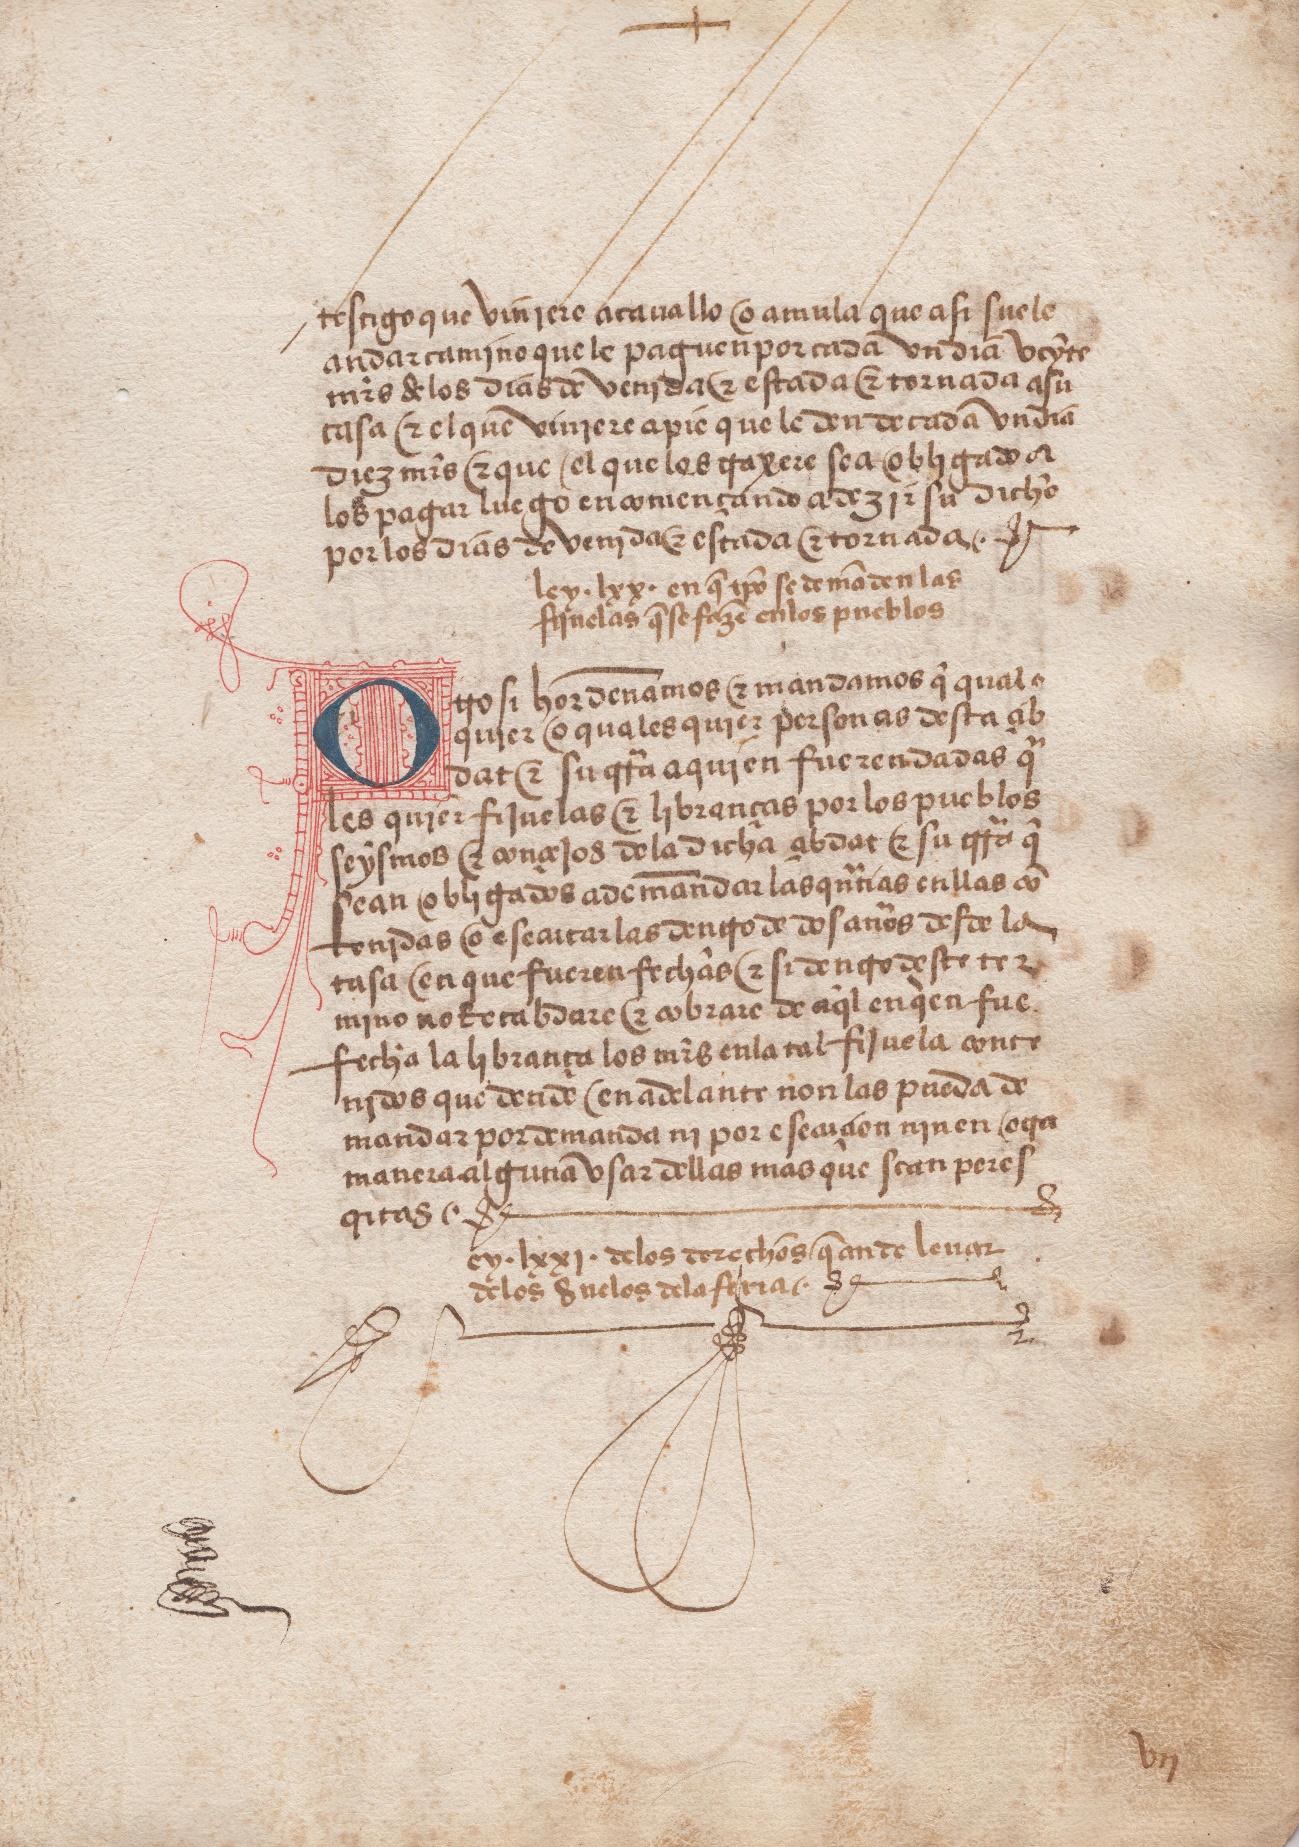 testigo que viniere a cavallo o a mula que asi suele
andar camino que le paguen por cada un dia veỹte
mrs̃ de los dias de venida & estada & tornada a su
casa & el que viniere a pie que le den de cada un dia
diez mrs̃ & que el que los traxere sea obligado a
los pagar luego en començando a dezir su dicho
por los dias de venida & estada & tornada.
ley . lxx . en q̃ tp̃o se demãden las
fijuelas q̃ se fazẽ en los pueblos
Otro si hordenamos & mandamos q̃ qual
quier o quales quier personas desta çib
dat & su trr̃a a quien fueren dadas q̃
les quier fijuelas & libranças por los pueblos
seysmos & conçejos de la dicha çibdat & su trr̃a q̃
sean obligados a demandar las qñtias en llas cõ
tenidas o esecutar las dentro de dos años desde la
tasa en que fueren fechas & si dentro deste ter
mino no recabdare & cobrare de aq̃l en quien fue
fecha la librança los mrs̃ en la tal fijuela conte
nidos que dende en adelante non las pueda de
mandar por demanda ni por esecuçion nin en otra
manera alguna usar dellas mas que sean peres
critas
ey . lxxi . de los derechos q̃ an de levar
de los suelos de la feria
vij